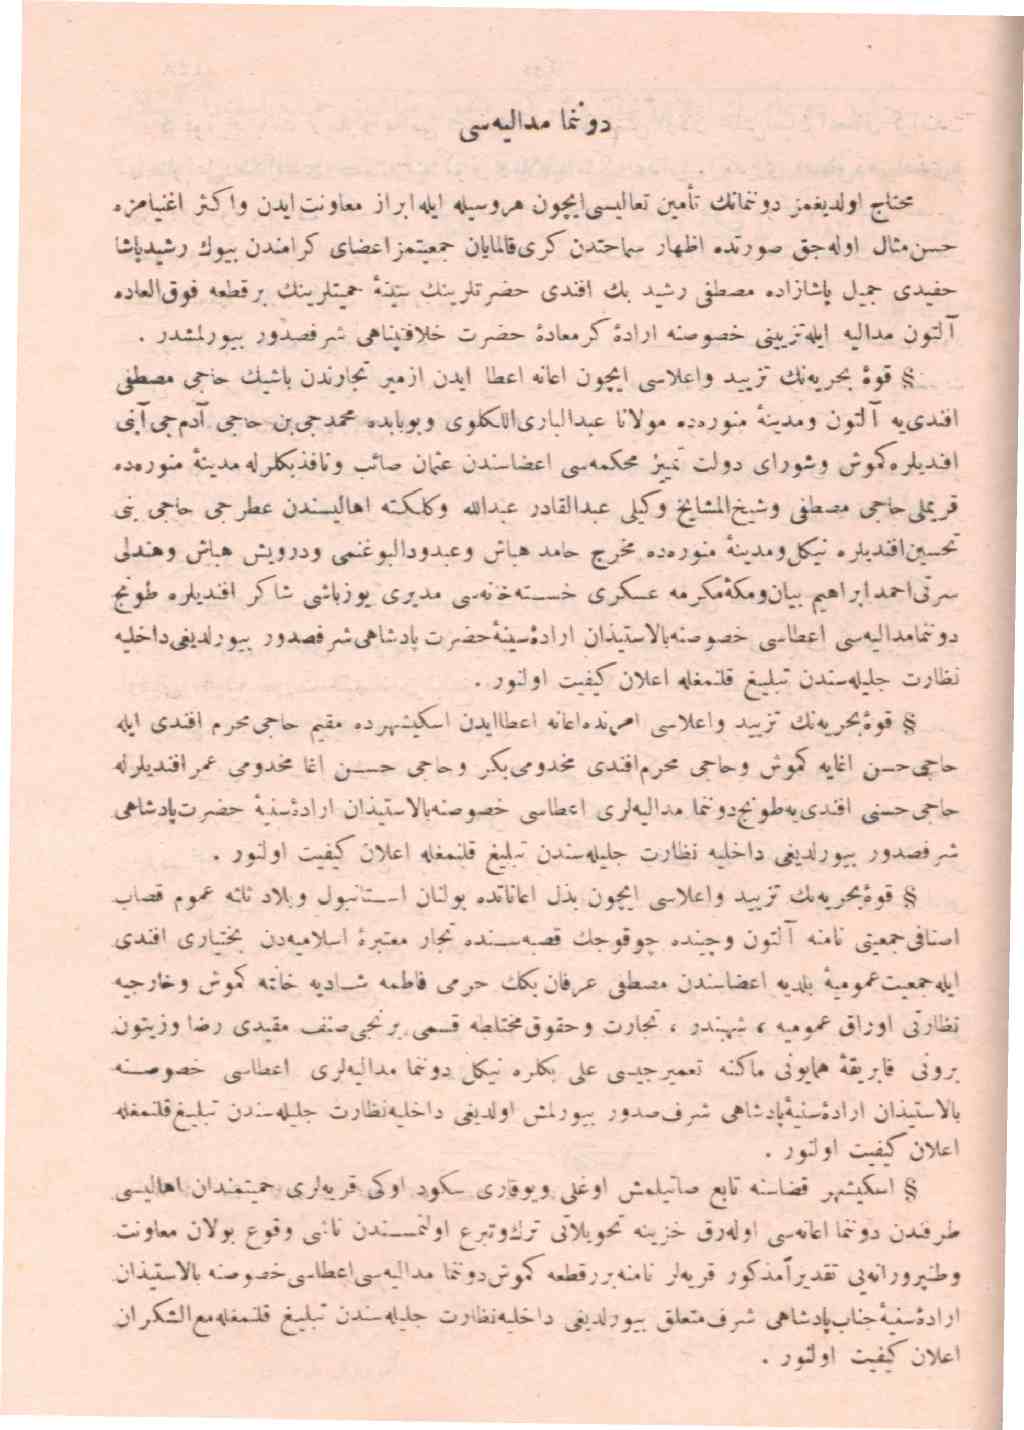 دوننما مداليه‌سى
محتاج اولديغمز دوننمانك تأمين تعاليسى ايچون هر وسيله ايله ابراز معاونت ايدن واكثر اغنيامزه
حسن مثال اوله‌جق صورتده اظهار سماحتدن كرى قالمايان جمعيتمز اعضاى كرامندن بيوك رشيد پاشا
حفيدى جميل پاشازاده مصطفى رشيد بك افندى حضرتلرينك سنيهٔ حميتلرينك بر قطعه فوق العاده
آلتون مداليه ايله تزيينى خصوصنه ارادهٔ كرمعادهٔ حضرت خلافتپناهى شرفصدور بيورلمشدر .
§ قوهٔ بحريه‌نك تزييد واعلاسى ايچون اعانه اعطا ايدن ازمير تجارندن باشيك حاجى مصطفى
افندى‌يه آلتون ومدينهٔ منوره‌ده مولانا عبدالبارى اللكلوى وبوبايده محمدجى بن حاجى آدم‌جى آپنى
افنديلره كموش وشوراى دولت تمييز محكمه‌سى اعضاسندن عثمان صائب ونافذ بكلرله مدينهٔ منوره‌ده
قريملى حاجى مصطفى وشيخ المشايخ وكيلى عبدالقادر عبدالله وكلكته اهاليسندن عطرجى حاجى بنى
تحسين افنديلره نيكل ومدينهٔ منوره‌ده مخرج حامد هباش وعبدودالبوغنمى ودرويش هباش وهندلى
سرتى احمد ابراهيم بيان ومكهٔ مكرمه عسكرى خسته‌خانه‌سى مديرى يوزباشى شاكر افنديلره طونج
دوننما مداليه‌سى اعطاسى خصوصنه بالاستيذان ارادهٔ سنيهٔ حضرت پادشاهى شرفصدور بيورلديغى داخليه
نظارت جليله‌سندن تبليغ قلنمغله اعلان كيفيت اولنور .
§ قوهٔ بحريه‌نك تزييد واعلاسى امرنده اعانه اعطا ايدن اسكيشهرده مقيم حاجى محرم افندى ايله
حاجى حسن اغايه كموش وحاجى محرم افندى مخدومى بكر وحاجى حسن اغا مخدومى عمر افنديلرله
حاجى حسنى افندى‌يه طونج دوننما مداليه‌لرى اعطاسى خصوصنه بالاستيذان ارادهٔ سنيهٔ حضرت پادشاهى
شرفصدور بيورلديغى داخليه نظارت جليله‌سندن تبليغ قلنمغله اعلان كيفيت اولنور .
§ قوهٔ بحريه‌نك تزييد واعلاسى ايچون بذل اعاناتده بولنان استانبول وبلاد ثلثه عموم قصاب
اصنافى جمعيتى نامنه آلتون وچينده چوقوجك قصبه‌سنده تجار معتبرهٔ اسلاميه‌دن بختيارى افندى
ايله جمعيت عموميهٔ بلديه اعضاسندن مصطفى عرفان بكك حرمى فاطمه شاديه خانمه كموش وخارجيه
نظارتى اوراق عموميه ، شهبندر ، تجارت وحقوق مختلطه قسمى برنجى صنف مقيدى رضا وزيتون
برونى فابريقهٔ همايونى ماكنه تعميرجيسى على بكلره نيكل دوننما مداليه‌لرى اعطاسى خصوصنه
بالاستيذان ارادهٔ سنيهٔ پادشاهى شرف‌صدور بيورلمش اولديغى داخليه نظارت جليله‌سندن تبليغ قلنمغله
اعلان كيفيت اولنور .
§ اسكيشهر قضاسنه تابع صاتيلمش اوغلى ويوقارى سكود اوكى قريه‌لرى حميتمندان اهاليسى
طرفندن دوننما اعانه‌سى اوله‌رق خزينه تحويلاتى ترك وتبرع اولنمسندن ناشى وقوع بولان معاونت
وطنپرورانه‌يى تقديراً مذكور قريه‌لر نامنه برر قطعه كموش دوننما مداليه‌سى اعطاسى خصوصنه بالاستيذان
ارادهٔ سنيهٔ جناب پادشاهى شرف‌متعلق بيورلديغى داخليه نظارت جليله‌سندن تبليغ قلنمغله مع‌الشكران
اعلان كيفيت اولنور .